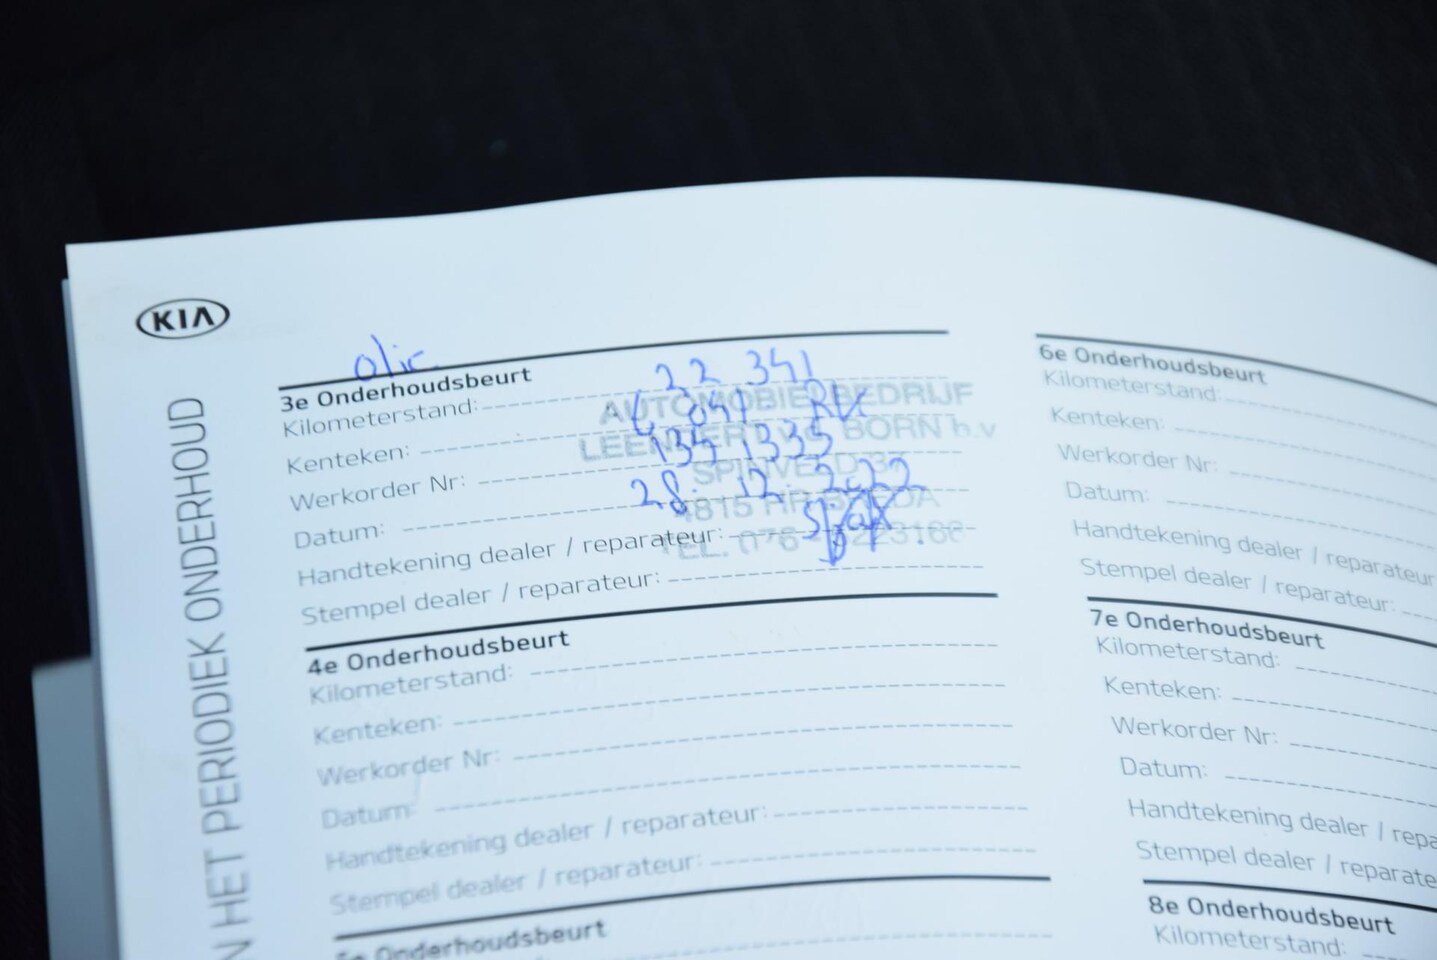 KIA
N HET PERIODIEK ONDERHOUD
olie
3e Onderhoudsbeurt
Kilometerstand: 22 341
Kenteken:
Werkorder Nr: 1351335
Datum: 28. 12. 2022
Handtekening dealer / reparateur:
Stempel dealer / reparateur:
AUTOMOBIELBEDRIJF
LEENDERT v.d. BORN b.v
SPINVELD
4815 HR BREDA
TEL. 076
4e Onderhoudsbeurt
Kilometerstand:
Kenteken:
Werkorder Nr:
Datum:
Handtekening dealer / reparateur:
Stempel dealer / reparateur:
5e Onderhoudsbeurt
6e Onderhoudsbeurt
Kilometerstand:
Kenteken:
Werkorder Nr:
Datum:
Handtekening dealer / reparateur
Stempel dealer / reparateur:
7e Onderhoudsbeurt
Kilometerstand:
Kenteken:
Werkorder Nr:
Datum:
Handtekening dealer / repa
Stempel dealer / reparate
8e Onderhoudsbeurt
Kilometerstand: